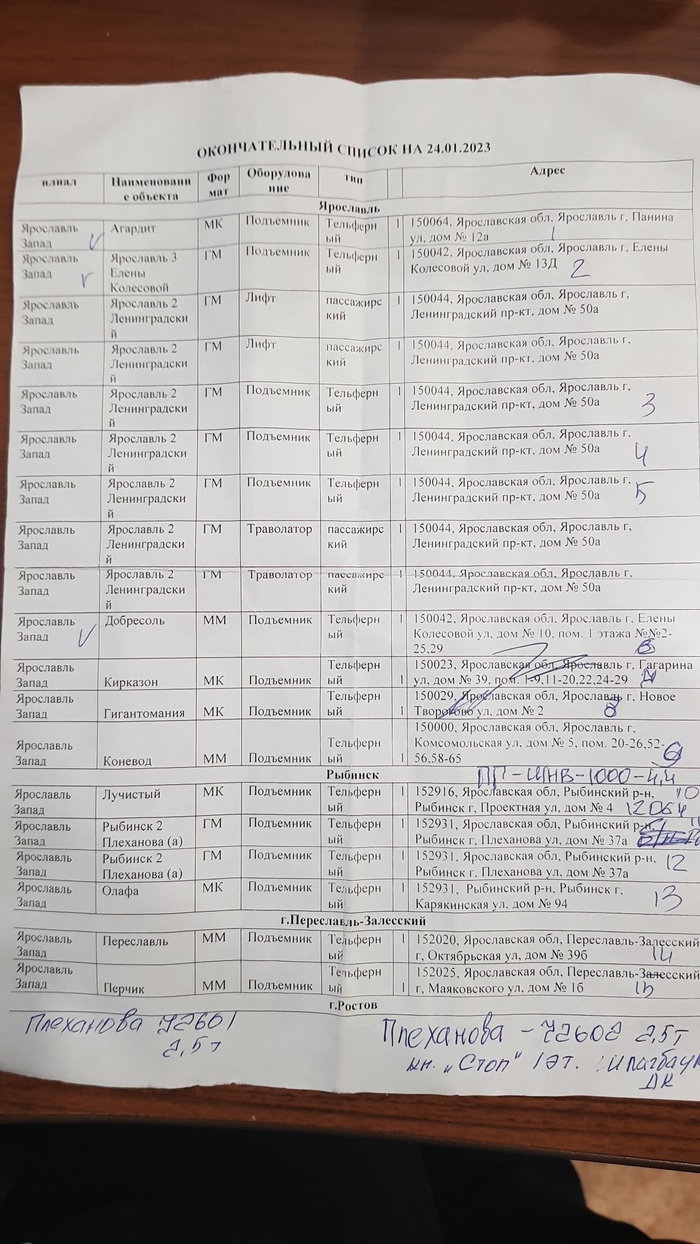 ОКОНЧАТЕЛЬНЫЙ СПИСОК НА 24.01.2023
илиал Наименовани Фор Оборудова тип Адрес
е объекта мат ние
Ярославль
Ярославль Агардит МК Подъемник Тельферн 1 150064, Ярославская обл, Ярославль г, Панина
Запад ый ул, дом № 12а 1
Ярославль Ярославль 3 ГМ Подъемник Тельферн 1 150042, Ярославская обл, Ярославль г, Елены
Запад Елены ый Колесовой ул, дом № 13Д 2
Колесовой
Ярославль Ярославль 2 ГМ Лифт пассажирс 1 150044, Ярославская обл, Ярославль г,
Запад Ленинградски кий Ленинградский пр-кт, дом № 50а
й
Ярославль Ярославль 2 ГМ Лифт пассажирс 1 150044, Ярославская обл, Ярославль г,
Запад Ленинградски кий Ленинградский пр-кт, дом № 50а
й
Ярославль Ярославль 2 ГМ Подъемник Тельферн 1 150044, Ярославская обл, Ярославль г,
Запад Ленинградски ый Ленинградский пр-кт, дом № 50а 3
й
Ярославль Ярославль 2 ГМ Подъемник Тельферн 1 150044, Ярославская обл, Ярославль г,
Запад Ленинградски ый Ленинградский пр-кт, дом № 50а 4
й
Ярославль Ярославль 2 ГМ Подъемник Тельферн 1 150044, Ярославская обл, Ярославль г,
Запад Ленинградски ый Ленинградский пр-кт, дом № 50а 5
й
Ярославль Ярославль 2 ГМ Траволатор пассажирс 1 150044, Ярославская обл, Ярославль г,
Запад Ленинградски кий Ленинградский пр-кт, дом № 50а
й
Ярославль Ярославль 2 ГМ Траволатор пассажирс 1 150044, Ярославская обл, Ярославль г,
Запад Ленинградски кий Ленинградский пр-кт, дом № 50а
й
Ярославль Добресоль ММ Подъемник Тельферн 1 150042, Ярославская обл, Ярославль г, Елены
Запад ый Колесовой ул, дом № 10, пом. 1 этажа №№2-
25,29 6
Ярославль Тельферн 150023, Ярославская обл, Ярославль г, Гагарина
Запад Кирказон МК Подъемник ый 1 ул, дом № 39, пом. 1-9,11-20,22,24-29
Ярославль Тельферн 150029, Ярославская обл, Ярославль г, Новое
Запад Гигантомания МК Подъемник ый 1 Творогово ул, дом № 2 8
150000, Ярославская обл, Ярославль г,
Ярославль Тельферн Комсомольская ул, дом № 5, пом. 20-26,52-
Запад Коневод ММ Подъемник ый 1 56,58-65 9
Рыбинск ПГ-ЦНВ-1000-4,4
Ярославль Лучистый МК Подъемник Тельферн 1 152916, Ярославская обл, Рыбинский р-н, 10
Запад ый Рыбинск г, Проектная ул, дом № 4 12064
Ярославль Рыбинск 2 ГМ Подъемник Тельферн 1 152931, Ярославская обл, Рыбинский р-н, 11
Запад Плеханова (а) ый Рыбинск г, Плеханова ул, дом № 37а
Ярославль Рыбинск 2 ГМ Подъемник Тельферн 1 152931, Ярославская обл, Рыбинский р-н, 12
Запад Плеханова (а) ый Рыбинск г, Плеханова ул, дом № 37а
Ярославль Олафа МК Подъемник Тельферн 1 152931, Рыбинский р-н, Рыбинск г,
Запад ый Карякинская ул, дом № 94 13
г.Переславль-Залесский
Ярославль Переславль ММ Подъемник Тельферн 1 152020, Ярославская обл, Переславль-Залесский
Запад ый г, Октябрьская ул, дом № 39б 14
Ярославль Тельферн 152025, Ярославская обл, Переславль-Залесский
Запад Перчик ММ Подъемник ый 1 г, Маяковского ул, дом № 1б 15
г.Ростов
Плеханова 72601 Плеханова - 72602 2,5т
2,5т кн. „Стоп" 1эт.
ДК